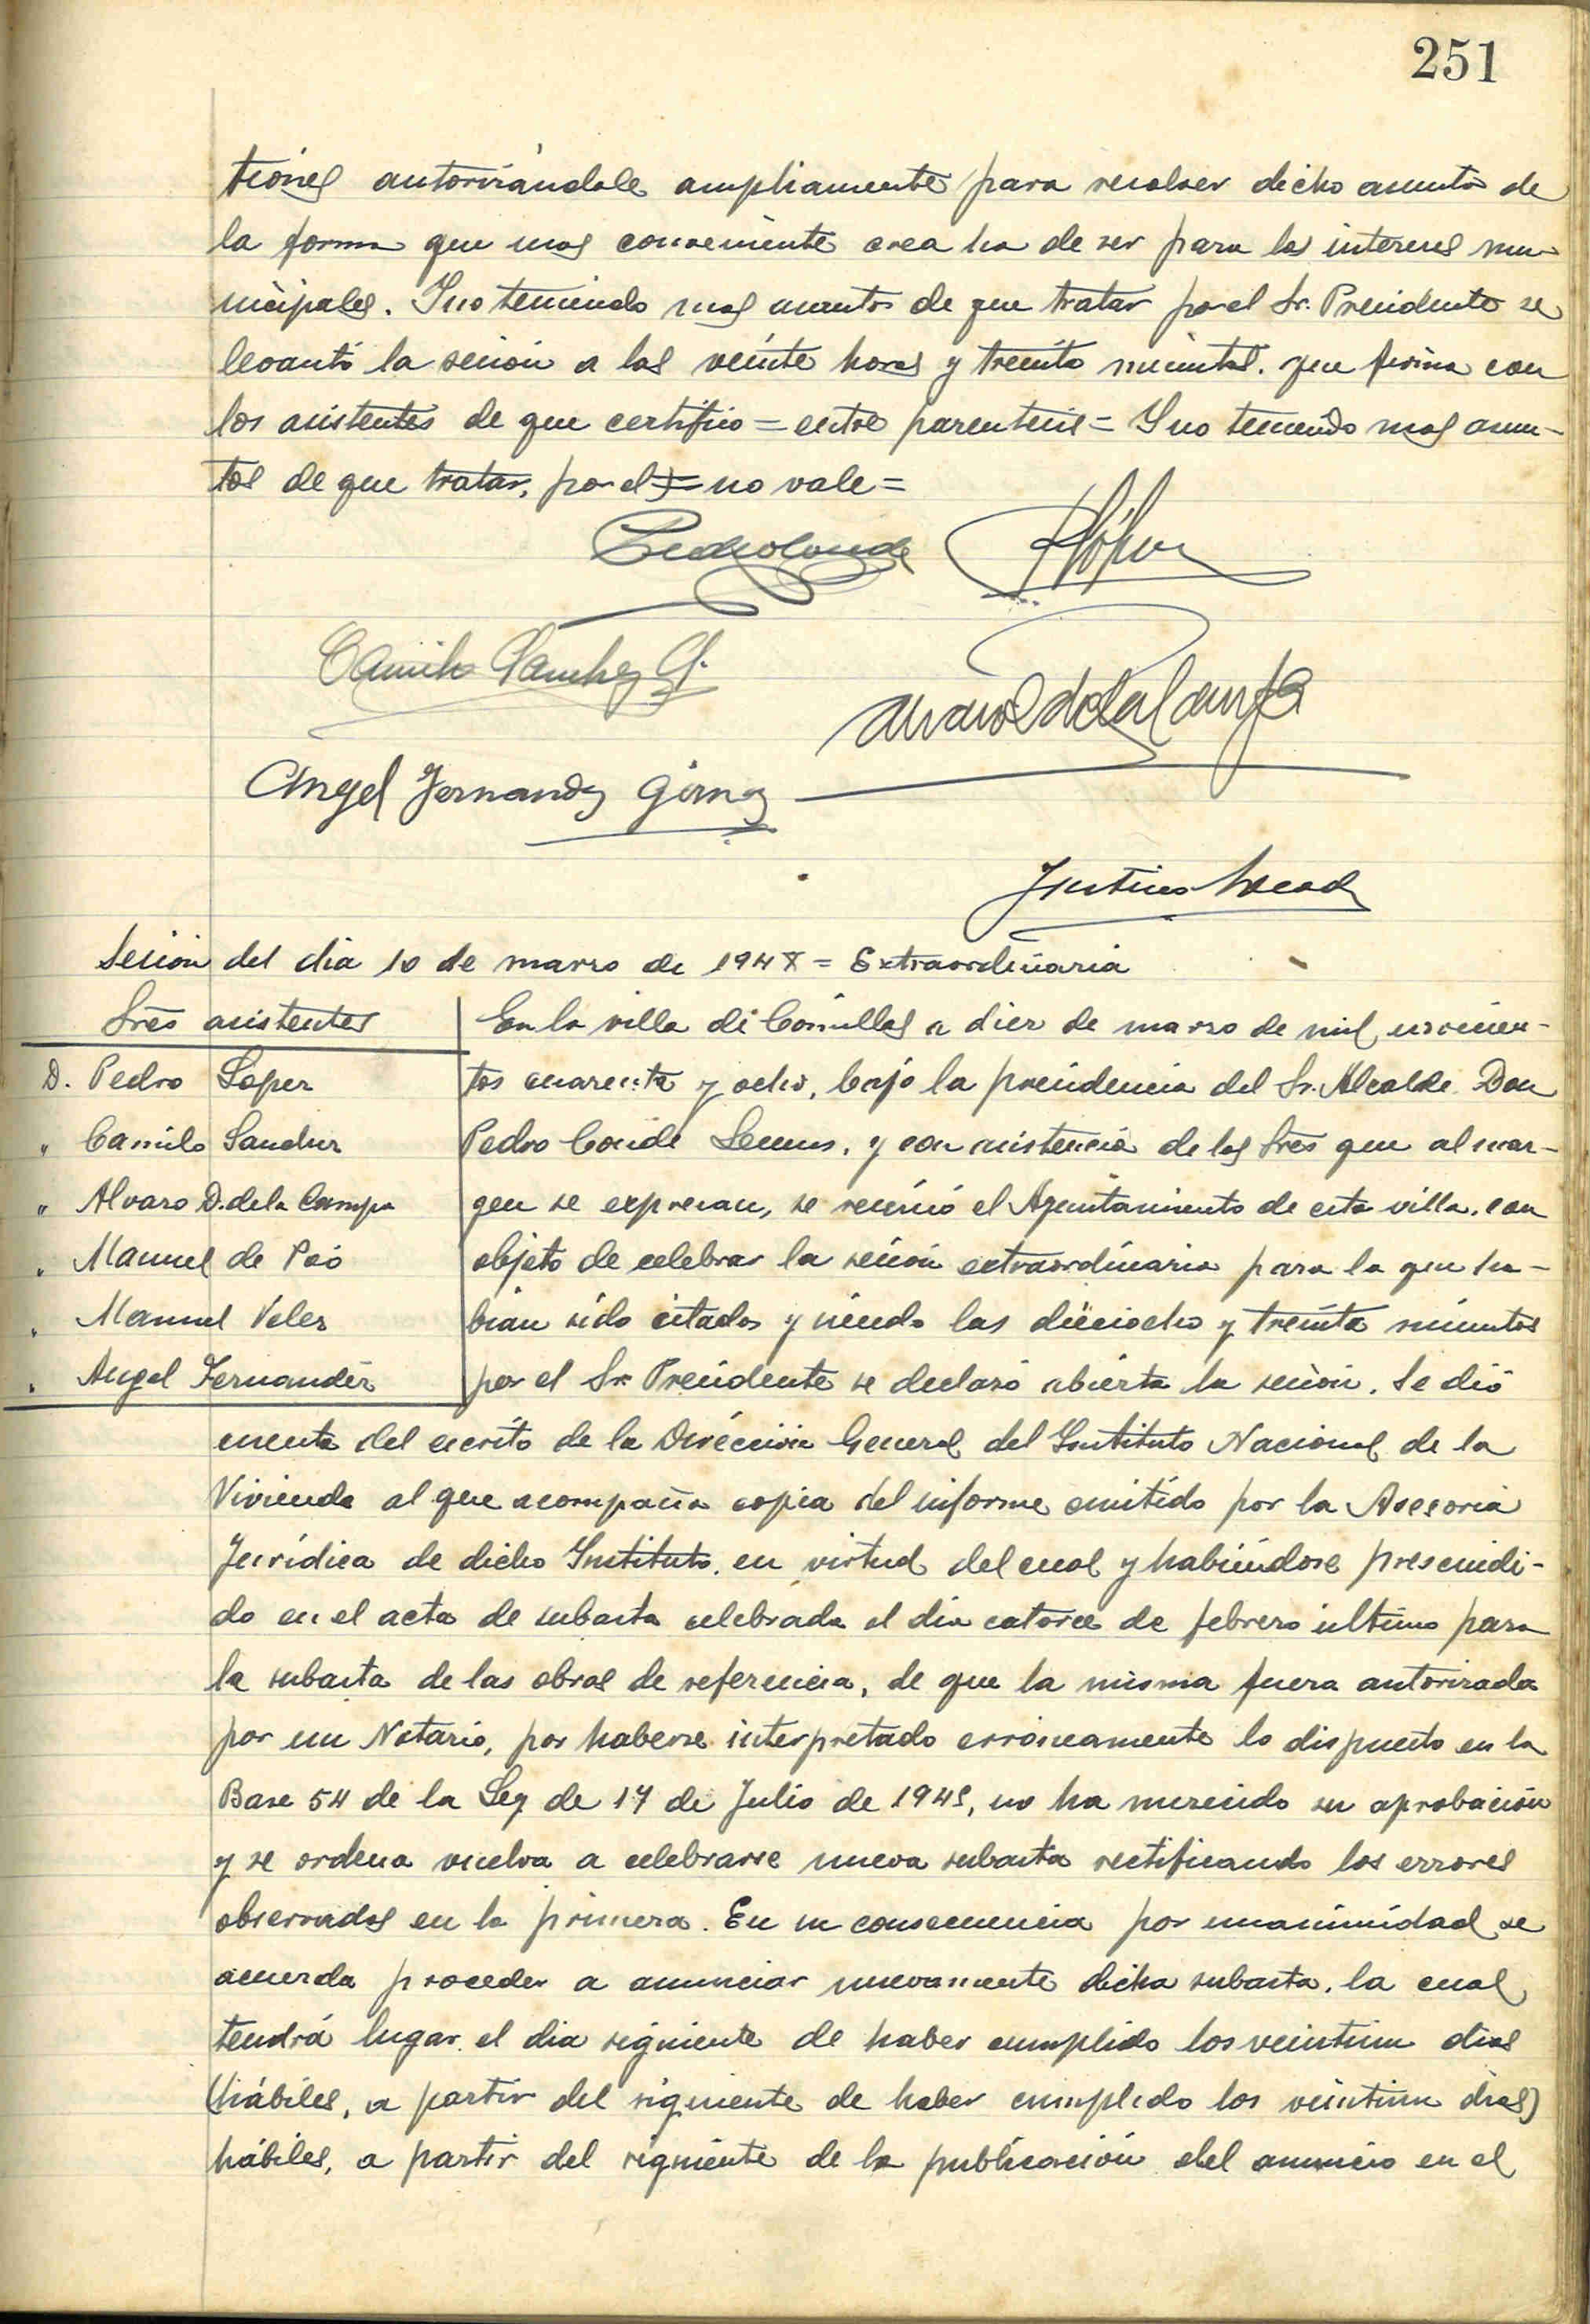 251
ciónes autorizándole ampliamente para resolver dicho asunto de
la forma que mas conveniente crea ha de ser para los intereses mu-
nicipales. Y no teniendo mas asuntos de que tratar por el Sr. Presidente se
levantó la sesión a las veinte horas y treinta minutos. que firma con
los asistentes de que certifico = entre parentesis = Y no teniendo mas asun-
tos de que tratar, por el) = no vale =
Pedro Conde
Camilo Sanchez G.
Alvaro D de la Campa
Angel Fernandez Gomez
Sesion del dia 10 de marzo de 1948 = Extraordinaria
Sres asistentes
D. Pedro Lopez
" Camilo Sanchez
" Alvaro D. de la Campa
" Manuel de Poó
" Manuel Velez
" Angel Fernandez
En la villa de Comillas a diez de marzo de mil novecien-
tos cuarenta y ocho, bajo la presidencia del Sr. Alcalde Don
Pedro Conde Lemus, y con asistencia de los Sres que al mar-
gen se expresan, se reunió el Ayuntamiento de esta villa, con
objeto de celebrar la sesión extraordinaria para la que ha-
bian sido citados y siendo las dieciocho y treinta minutos
por el Sr. Presidente se declaró abierta la sesión. Se dió
cuenta del escrito de la Dirección General del Instituto Nacional de la
Vivienda al que acompaña copia del informe emitido por la Asesoria
Jurídica de dicho Instituto, en virtud del cual y habiéndose prescindi-
do en el acta de subasta celebrada el dia catorce de febrero último para
la subasta de las obras de referencia, de que la misma fuera autorizada
por un Notario, por haberse interpretado erróneamente lo dispuesto en la
Base 54 de la Ley de 17 de Julio de 1945, no ha merecido su aprobación
y se ordena vuelva a celebrarse nueva subasta rectificando los errores
observados en la primera. En su consecuencia por unanimidad se
acuerda proceder a anunciar nuevamente dicha subasta, la cual
tendrá lugar el dia siguiente de haber cumplido los veintiun dias
(hábiles, a partir del siguiente de haber cumplido los veintiun dias)
hábiles, a partir del siguiente de la publicación del anuncio en el